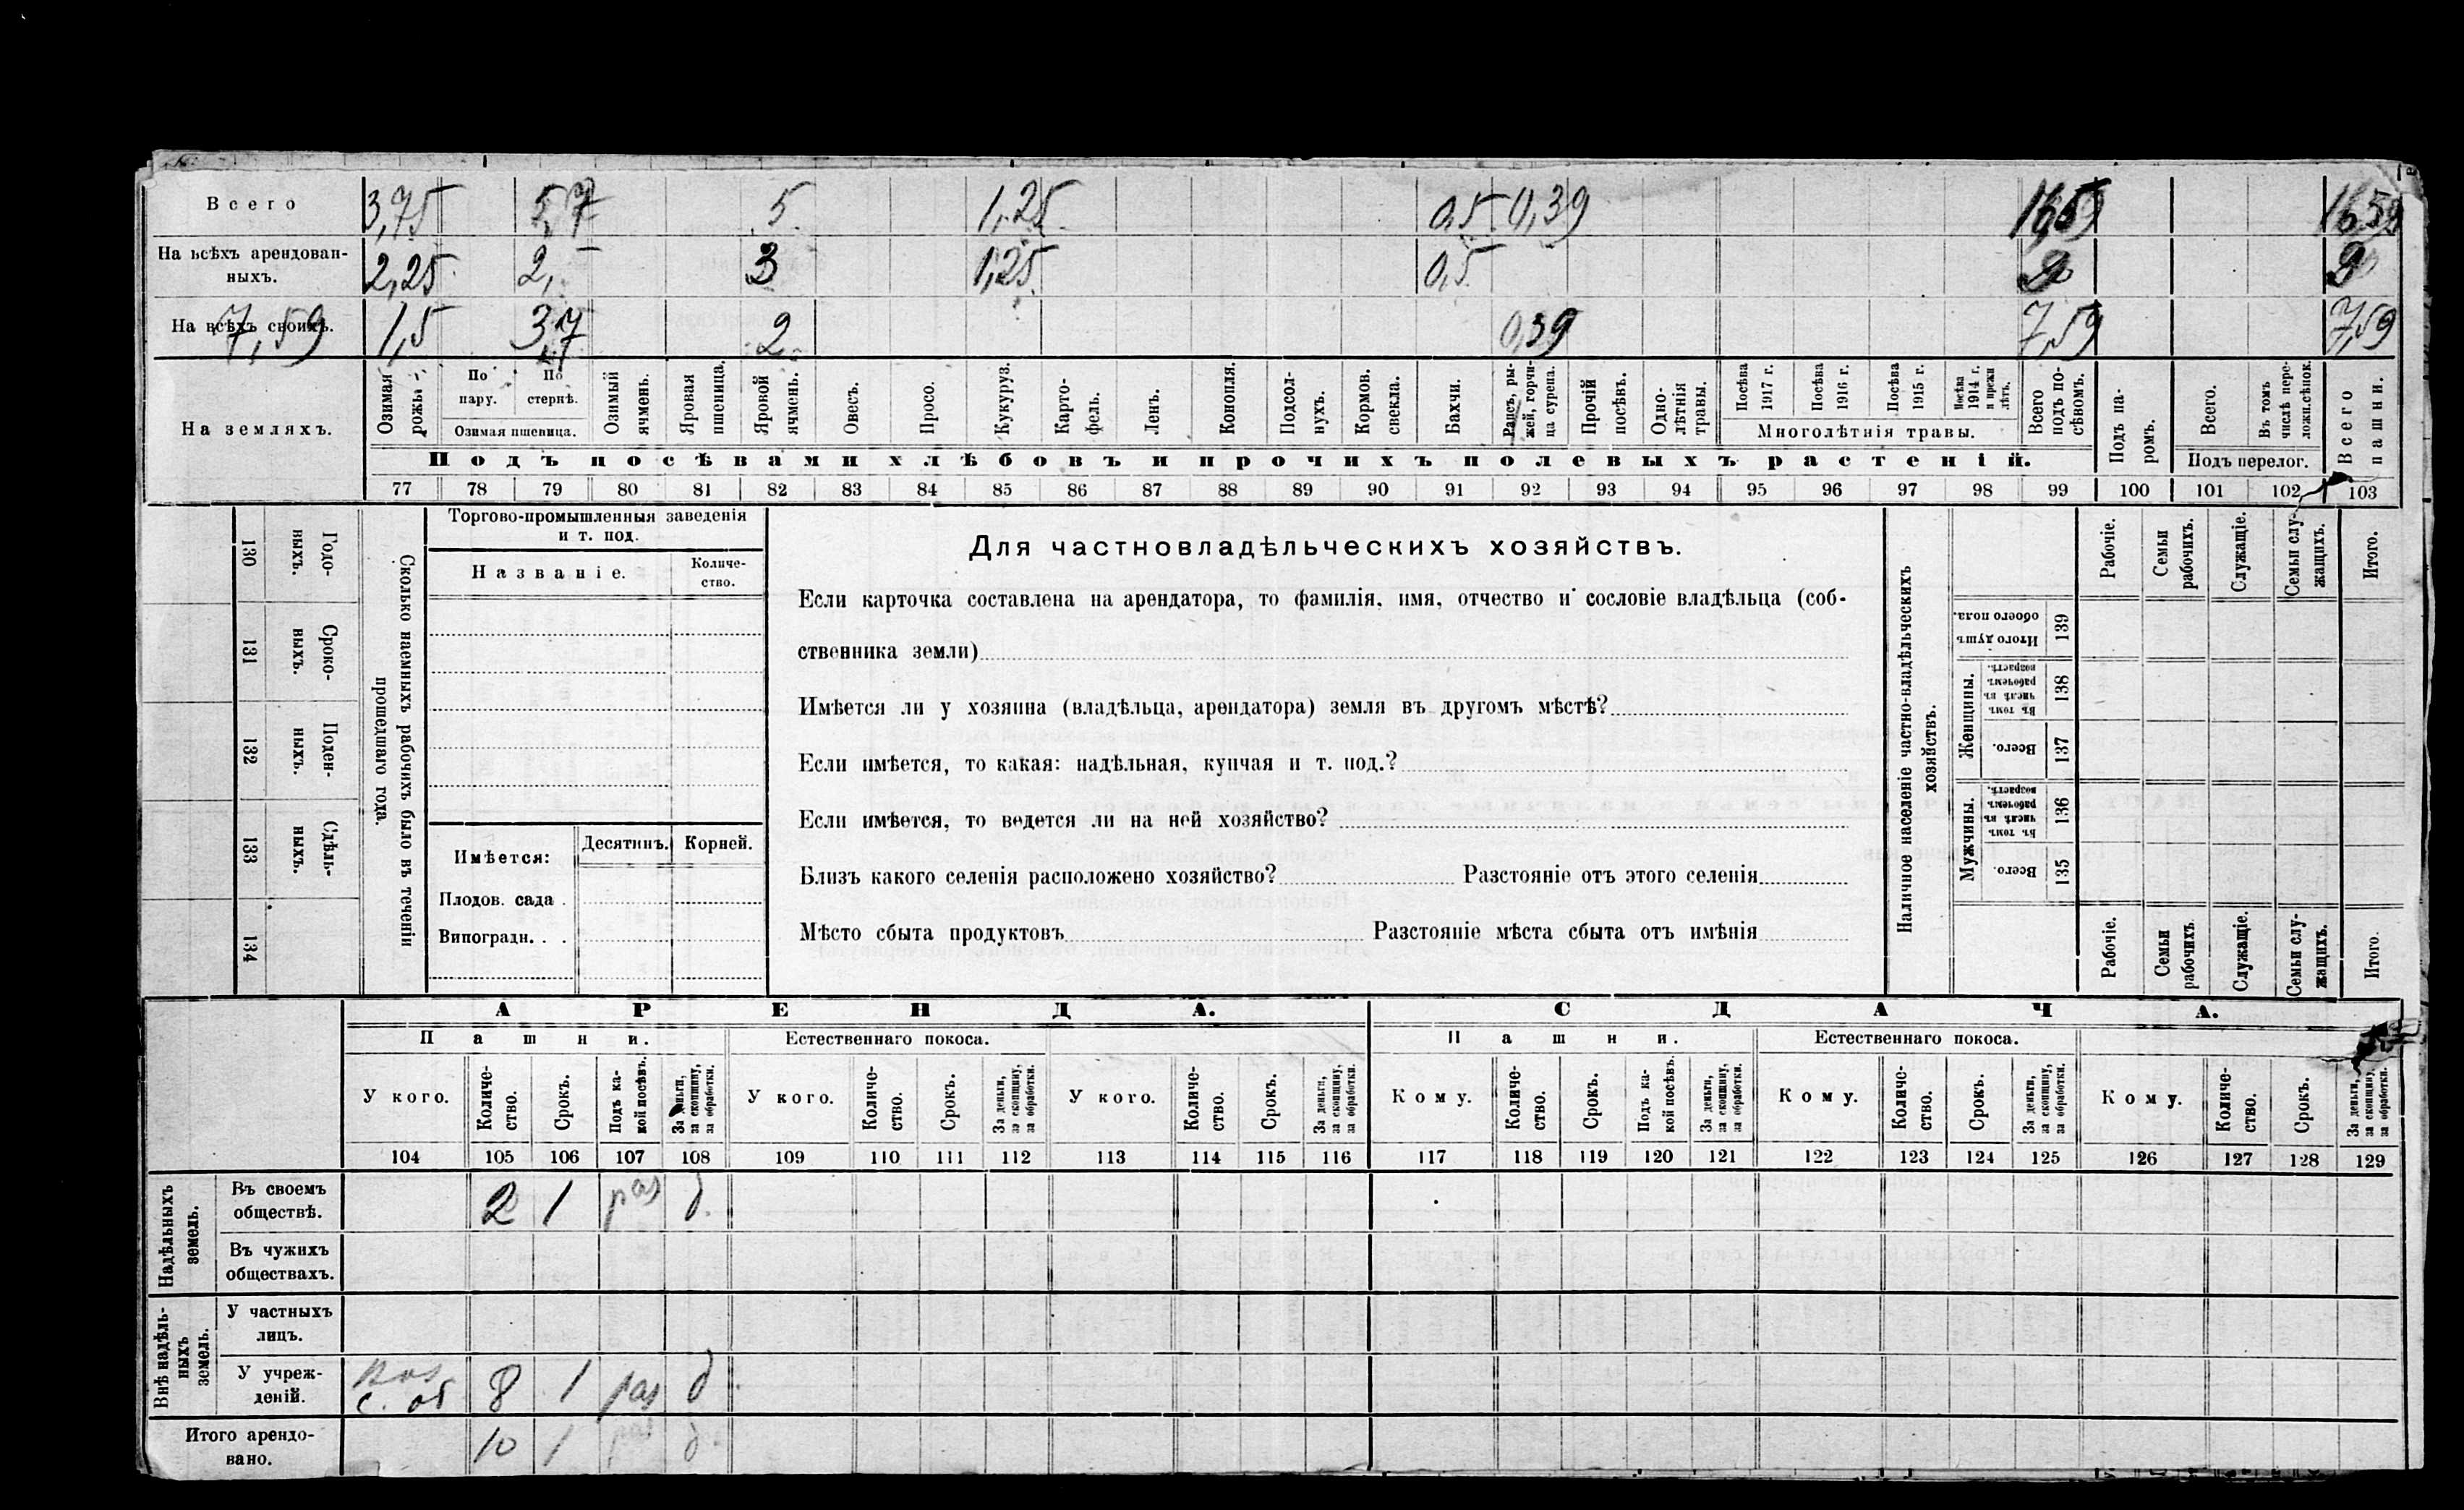 Всего 3,75 5,7 5. 1,25 0,5 0,39 16,59 16,59
На всѣхъ арендован-
ныхъ. 2,25 2, 3 1,25 0,5 9 9
На всѣхъ своихъ. 7,59 1,5 3,7 2 0,39 7,59 7,59
На земляхъ.
Озимая рожь
По пару.
По стернѣ.
Озимая пшеница.
Озимый ячмень.
Яровая пшеница.
Яровой ячмень.
Овесъ.
Просо.
Кукуруз.
Карто-
фель.
Ленъ.
Конопля.
Подсол-
нухъ.
Кормов.
свекла.
Бахчи.
Рапсъ, ры-
жей, горчи-
ца сурепа.
Прочій
посѣвъ.
Одно-
лѣтнія
травы.
Посѣва
1917 г.
Посѣва
1916 г.
Посѣва
1915 г.
Посѣва
1914 г.
и прежн
лѣтъ.
Многолѣтнія травы.
Всего
подъ по-
сѣвомъ.
Подъ па-
ромъ.
Всего.
Въ томъ
числѣ пере-
ложн.сѣнок.
Подъ перелог.
Всего
пашни.
Подъ посѣвами хлѣбовъ и прочихъ полевыхъ растеній.
77 78 79 80 81 82 83 84 85 86 87 88 89 90 91 92 93 94 95 96 97 98 99 100 101 102 103
130 Годо-
ныхъ.
131 Сроко-
ныхъ.
132 Поден-
ныхъ.
133 Сдѣль-
ныхъ.
134
Сколько наемныхъ рабочихъ было въ теченіи
прошедшаго года.
Торгово-промышленныя заведенія
и т. под.
Названіе.
Количе-
ство.
Имѣется:
Десятинъ.
Корней.
Плодов. сада .
Виноградн. . .
Для частновладѣльческихъ хозяйствъ.
Если карточка составлена на арендатора, то фамилія, имя, отчество и сословіе владѣльца (соб-
ственника земли)
Имѣется ли у хозяина (владѣльца, арендатора) земля въ другомъ мѣстѣ?
Если имѣется, то какая: надѣльная, купчая и т. под.?
Если имѣется, то ведется ли на ней хозяйство?
Близъ какого селенія расположено хозяйство? Разстояніе отъ этого селенія
Мѣсто сбыта продуктовъ Разстояніе мѣста сбыта отъ имѣнія
Наличное населеніе частно-владѣльческихъ
хозяйствъ.
Рабочіе.
Семьи
рабочихъ.
Служащіе.
Семьи слу-
жащихъ.
Итого.
Итого душъ
обоего пола.
139
Женщины.
Въ томъ
числѣ въ
рабочемъ
возрастѣ.
138
Всего.
137
Мужчины.
Въ томъ
числѣ въ
рабочемъ
возрастѣ.
136
Всего.
135
Рабочіе.
Семьи
рабочихъ
Служащіе.
Семьи слу-
жащихъ.
Итого.
АРЕНДА. СДАЧА.
Пашни. Естественнаго покоса. Пашни. Естественнаго покоса.
У кого.
Количе-
ство.
Срокъ.
Подъ ка-
кой посѣвъ.
За деньги,
за скопщину,
за обработки.
У кого.
Количе-
ство.
Срокъ.
За деньги,
за скопщину,
за обработки.
У кого.
Количе-
ство.
Срокъ.
За деньги,
за скопщину,
за обработки.
Кому.
Количе-
ство.
Срокъ.
Подъ ка-
кой посѣвъ
За деньги,
за скопщину,
за обработки.
Кому.
Количе-
ство.
Срокъ.
За деньги,
за скопщину,
за обработки.
Кому.
Количе-
ство.
Срокъ.
За деньги,
за скопщину,
за обработки.
104 105 106 107 108 109 110 111 112 113 114 115 116 117 118 119 120 121 122 123 124 125 126 127 128 129
Надѣльныхъ
земель.
Въ своемъ
обществѣ. 2 1 раз д.
Въ чужихъ
обществахъ.
Внѣ надѣль-
ныхъ
земель.
У частныхъ
лицъ.
У учреж-
деній. с. об 8 1 раз д.
Итого арендо-
вано. 10 1 раз д.